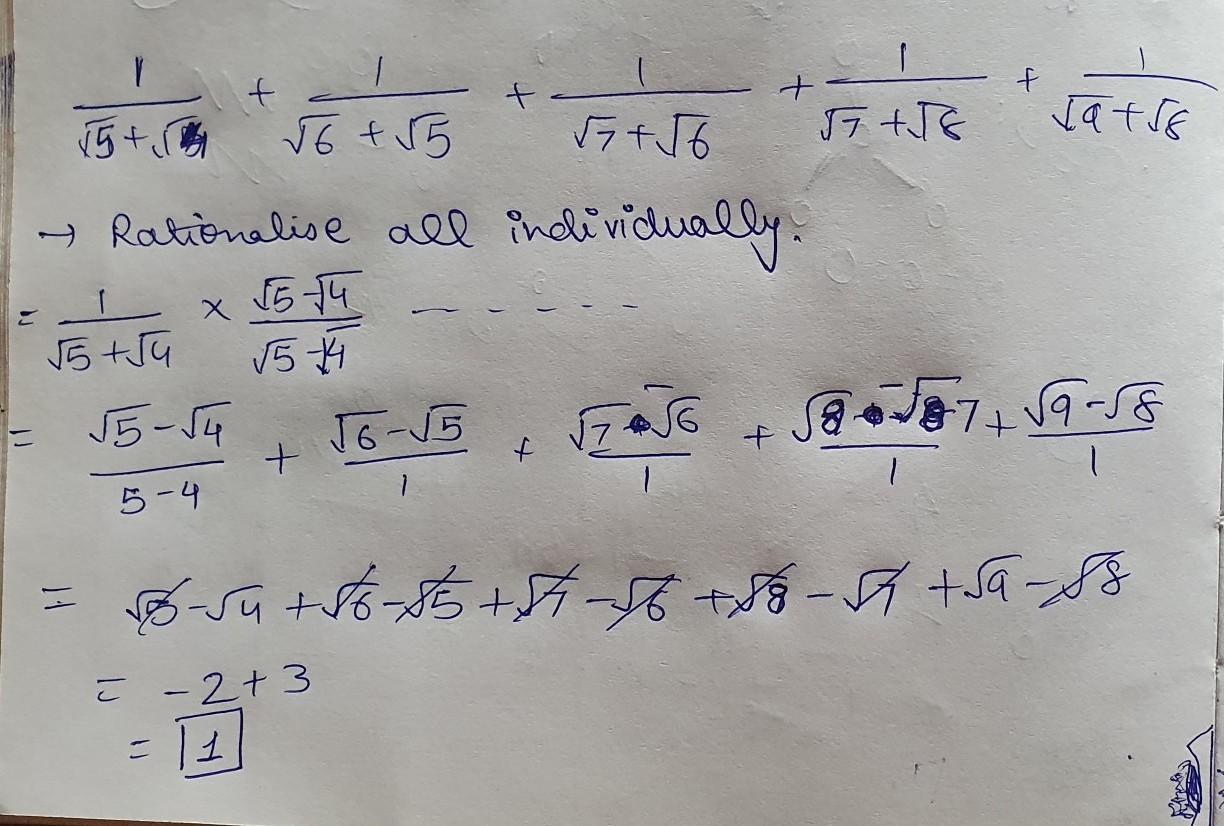 1/(√5+√4) + 1/(√6+√5) + 1/(√7+√6) + 1/(√7+√8) + 1/(√9+√8)
→ Rationalise all individually.
= 1/(√5+√4) × (√5-√4)/(√5-√4) - - - - - -
= (√5-√4)/(5-4) + (√6-√5)/1 + (√7-√6)/1 + (√8-√7)/1 + (√9-√8)/1
= √5-√4+√6-√5+√7-√6+√8-√7+√9-√8
= -2+3
= 1